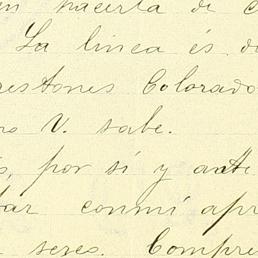 en hacerla de c
La linea és de
restones Colorado
ro V. sabe.
s, por sí y ante
tar conmí apr
seres. Compre